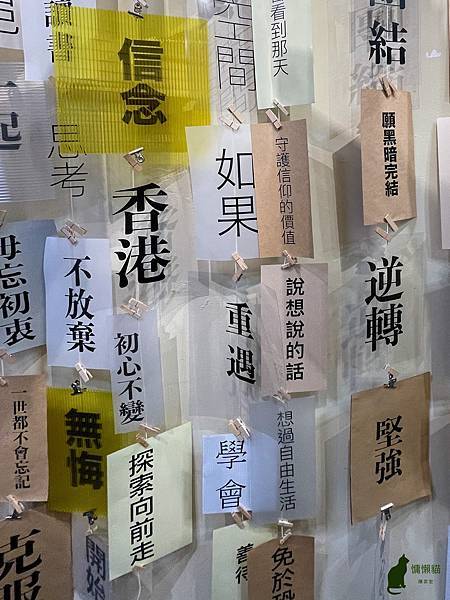 讀書
信念
空間
看到那天
團結
一起
思考
如果
守護信仰的價值
願黑暗完結
香港
毋忘初衷
不放棄
初心不變
重遇
說想說的話
逆轉
一世都不會忘記
無悔
探索向前走
學會
想過自由生活
堅強
克服
開始
善待
免於恐
慵懶貓